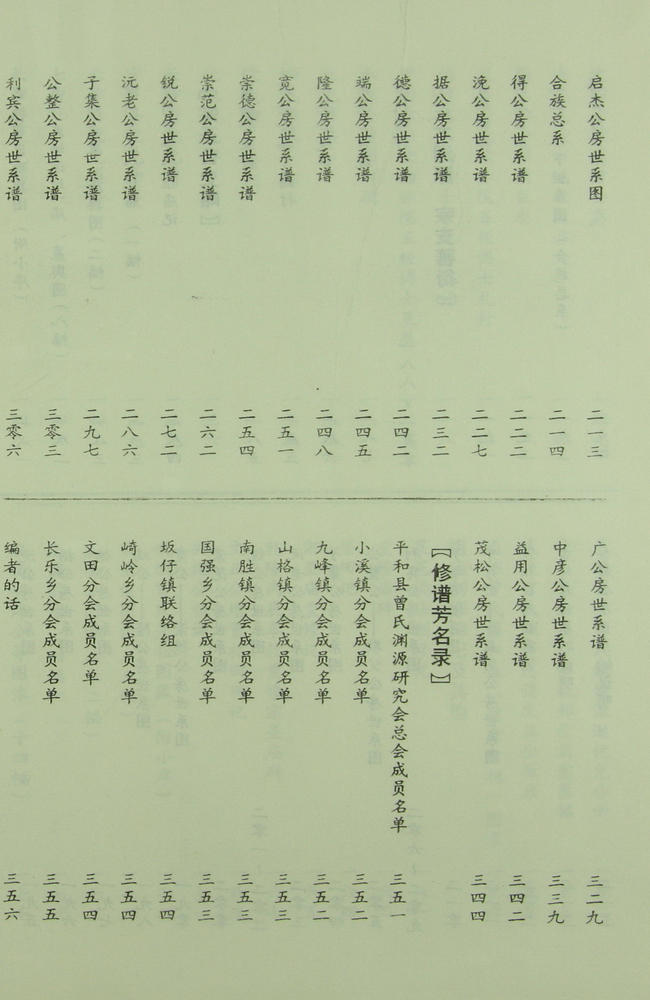 启杰公房世系图 二一三
合族总系 二一四
得公房世系谱 二二二
浼公房世系谱 二二七
据公房世系谱 二三二
德公房世系谱 二四二
端公房世系谱 二四五
隆公房世系谱 二四八
宽公房世系谱 二五一
崇德公房世系谱 二五四
崇范公房世系谱 二六二
锐公房世系谱 二七二
沅老公房世系谱 二八六
子集公房世系谱 二九七
公整公房世系谱 三零三
利宾公房世系谱 三零六
广公房世系谱 三二九
中彦公房世系谱 三三九
益用公房世系谱 三四二
茂松公房世系谱 三四四
【修谱芳名录】
平和县曾氏渊源研究会总会成员名单 三五一
小溪镇分会成员名单 三五二
九峰镇分会成员名单 三五二
山格镇分会成员名单 三五三
南胜镇分会成员名单 三五三
国强乡分会成员名单 三五三
坂仔镇联络组 三五四
崎岭乡分会成员名单 三五四
文田分会成员名单 三五四
长乐乡分会成员名单 三五五
编者的话 三五六